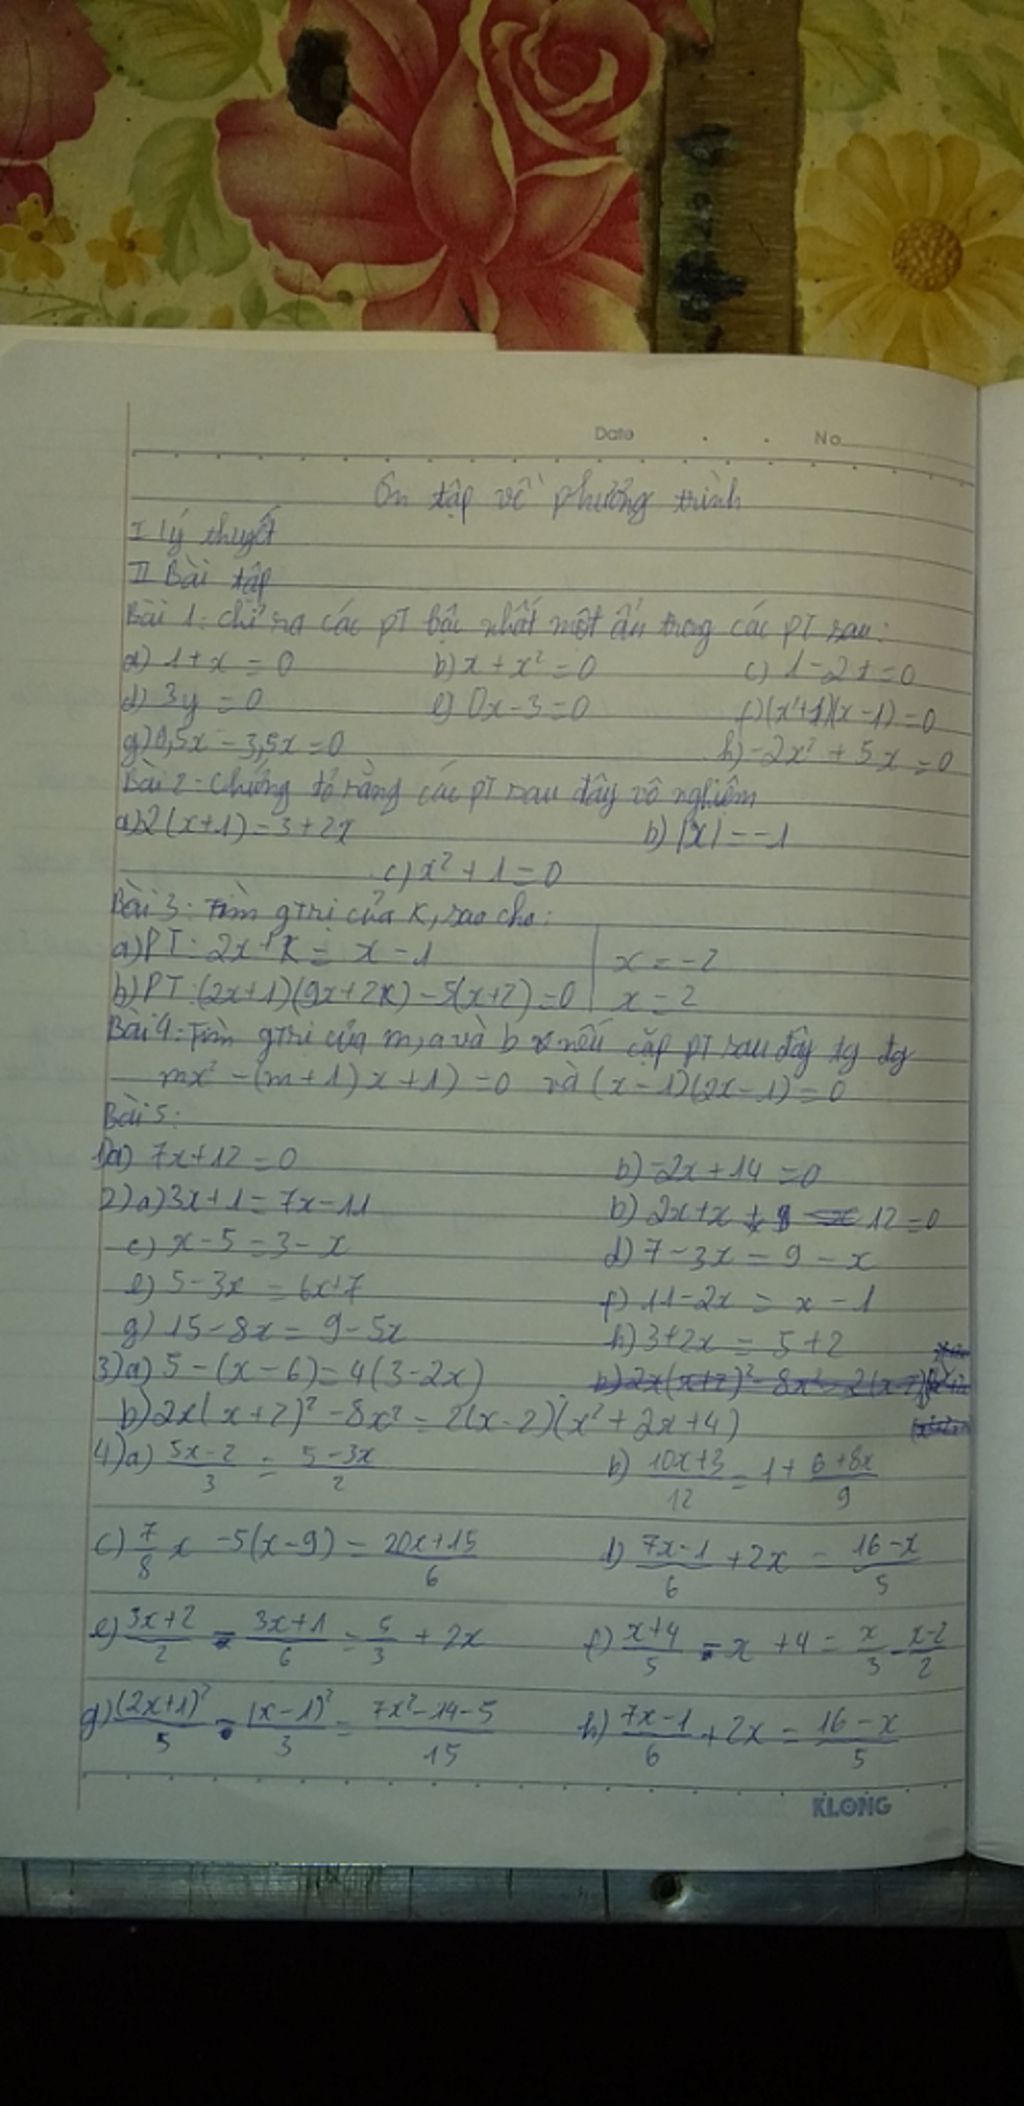 Date No
Ôn tập về phương trình
I Lý thuyết
II Bài tập
Bài 1: Chỉ ra các PT bậc nhất một ẩn trong các PT sau:
a) 1+x = 0 b) x + x² = 0 c) 1-2x = 0
d) 3y = 0 e) 0x-3=0 f) (x²+1)(x-1)=0
g) 0,5x - 3,5x = 0 h) -2x² + 5x = 0
Bài 2: Chứng tỏ rằng các PT sau đây vô nghiệm
a) 2(x+1) = 3+2x b) |x| = -1
c) x² + 1 = 0
Bài 3: Tìm gTrị của K, sao cho:
a) PT: 2x+K = x - 1 | x = -2
b) PT: (2x+1)(9x+2K) - 5(x+2) = 0 | x = 2
Bài 4: Tìm gTrị của m, a và b nếu cặp PT sau đây tg đg
mx² - (m+1)x+1) = 0 và (x-1)(2x-1) = 0
Bài 5:
1)a) 7x+12 = 0 b) -2x+14 = 0
2) a) 3x+1 = 7x-11 b) 2x+x + 12 = 0
c) x-5 = 3-x d) 7-3x = 9-x
e) 5-3x = 6x+7 f) 11-2x = x-1
g) 15-8x = 9-5x h) 3+2x = 5+2
3)a) 5-(x-6) = 4(3-2x)
b) 2x(x+2)² - 8x² = 2(x-2)(x²+2x+4)
4)a) (5x-2)/3 = (5-3x)/2 b) (10x+3)/12 = 1 + (6+8x)/9
c) 7/8 x - 5(x-9) = (20x+15)/6 d) (7x-1)/6 + 2x = (16-x)/5
e) (3x+2)/2 - (3x+1)/6 = 5/3 + 2x f) (x+4)/5 - x + 4 = x/3 - (x-2)/2
g) (2x+1)²/5 - (x-1)²/3 = (7x²-14-5)/15 h) (7x-1)/6 + 2x = (16-x)/5
KLONG